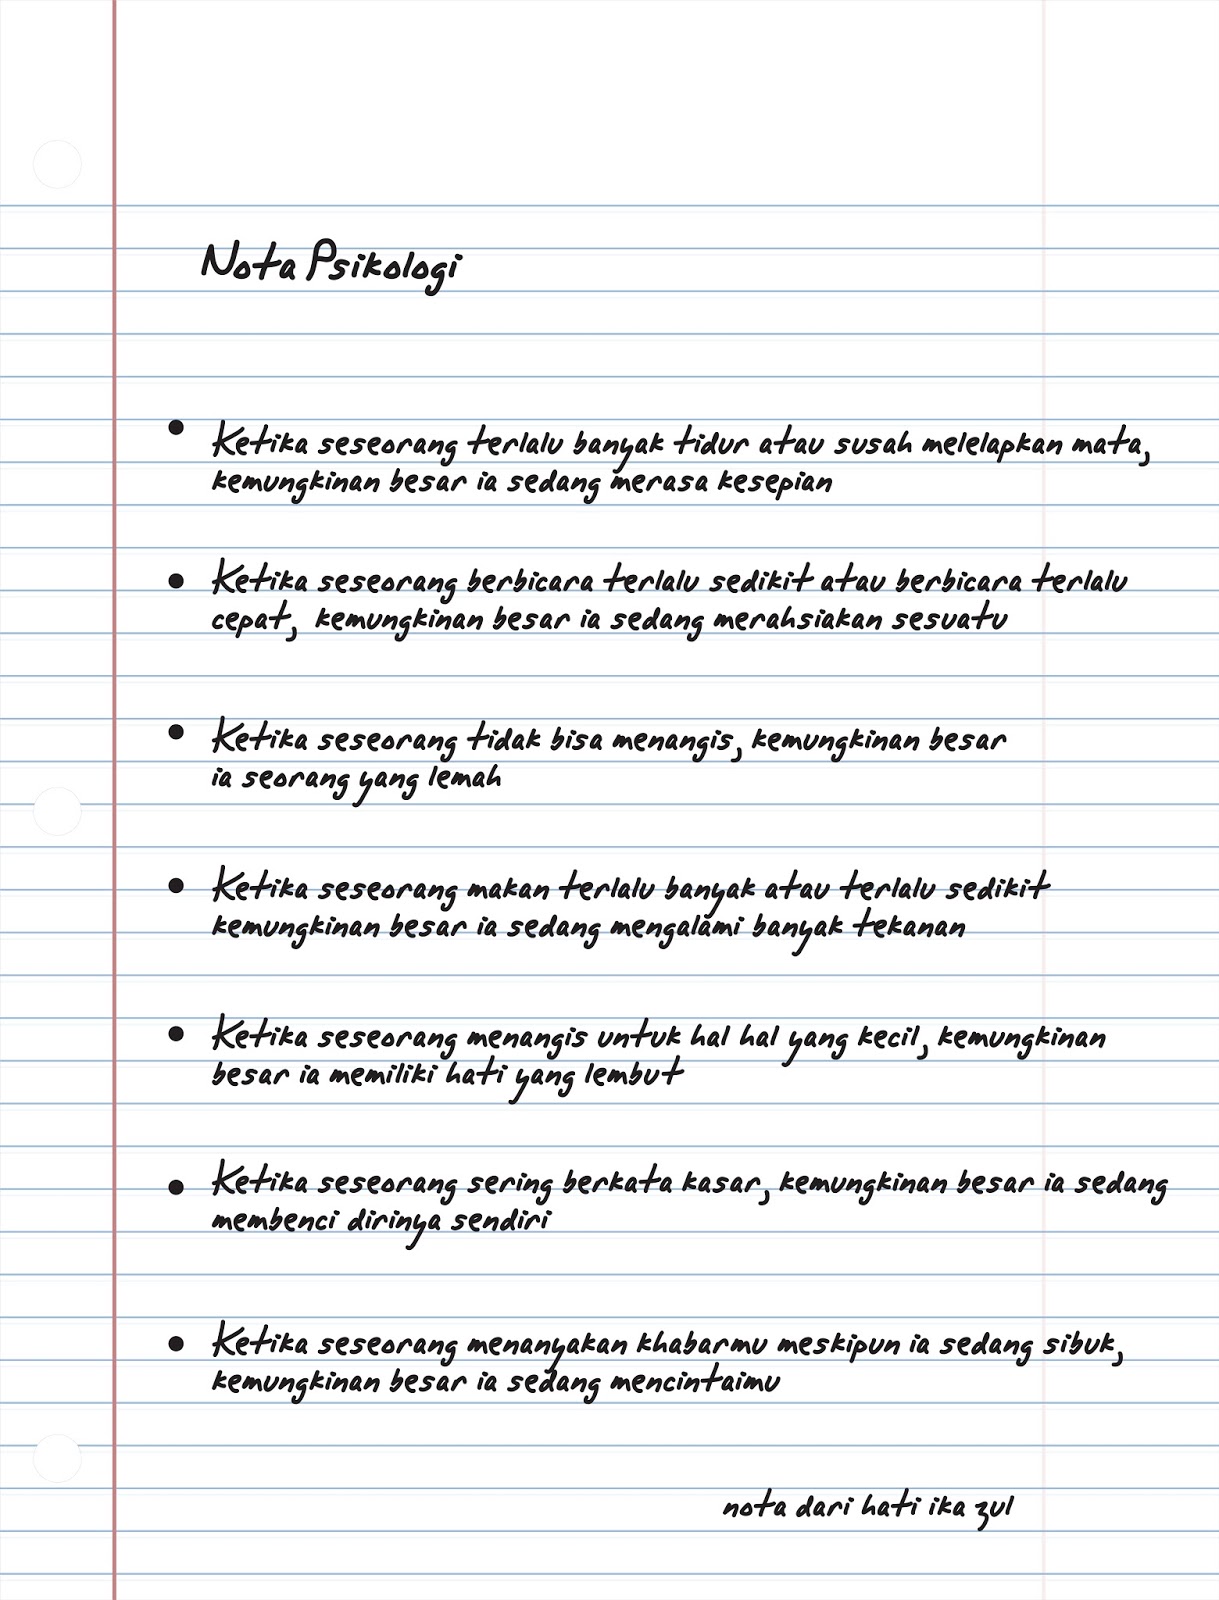 Nota Psikologi
• Ketika seseorang terlalu banyak tidur atau susah melelapkan mata,
kemungkinan besar ia sedang merasa kesepian
• Ketika seseorang berbicara terlalu sedikit atau berbicara terlalu
cepat, kemungkinan besar ia sedang merahsiakan sesuatu
• Ketika seseorang tidak bisa menangis, kemungkinan besar
ia seorang yang lemah
• Ketika seseorang makan terlalu banyak atau terlalu sedikit
kemungkinan besar ia sedang mengalami banyak tekanan
• Ketika seseorang menangis untuk hal hal yang kecil, kemungkinan
besar ia memiliki hati yang lembut
• Ketika seseorang sering berkata kasar, kemungkinan besar ia sedang
membenci dirinya sendiri
• Ketika seseorang menanyakan khabarmu meskipun ia sedang sibuk,
kemungkinan besar ia sedang mencintaimu
nota dari hati ika zul